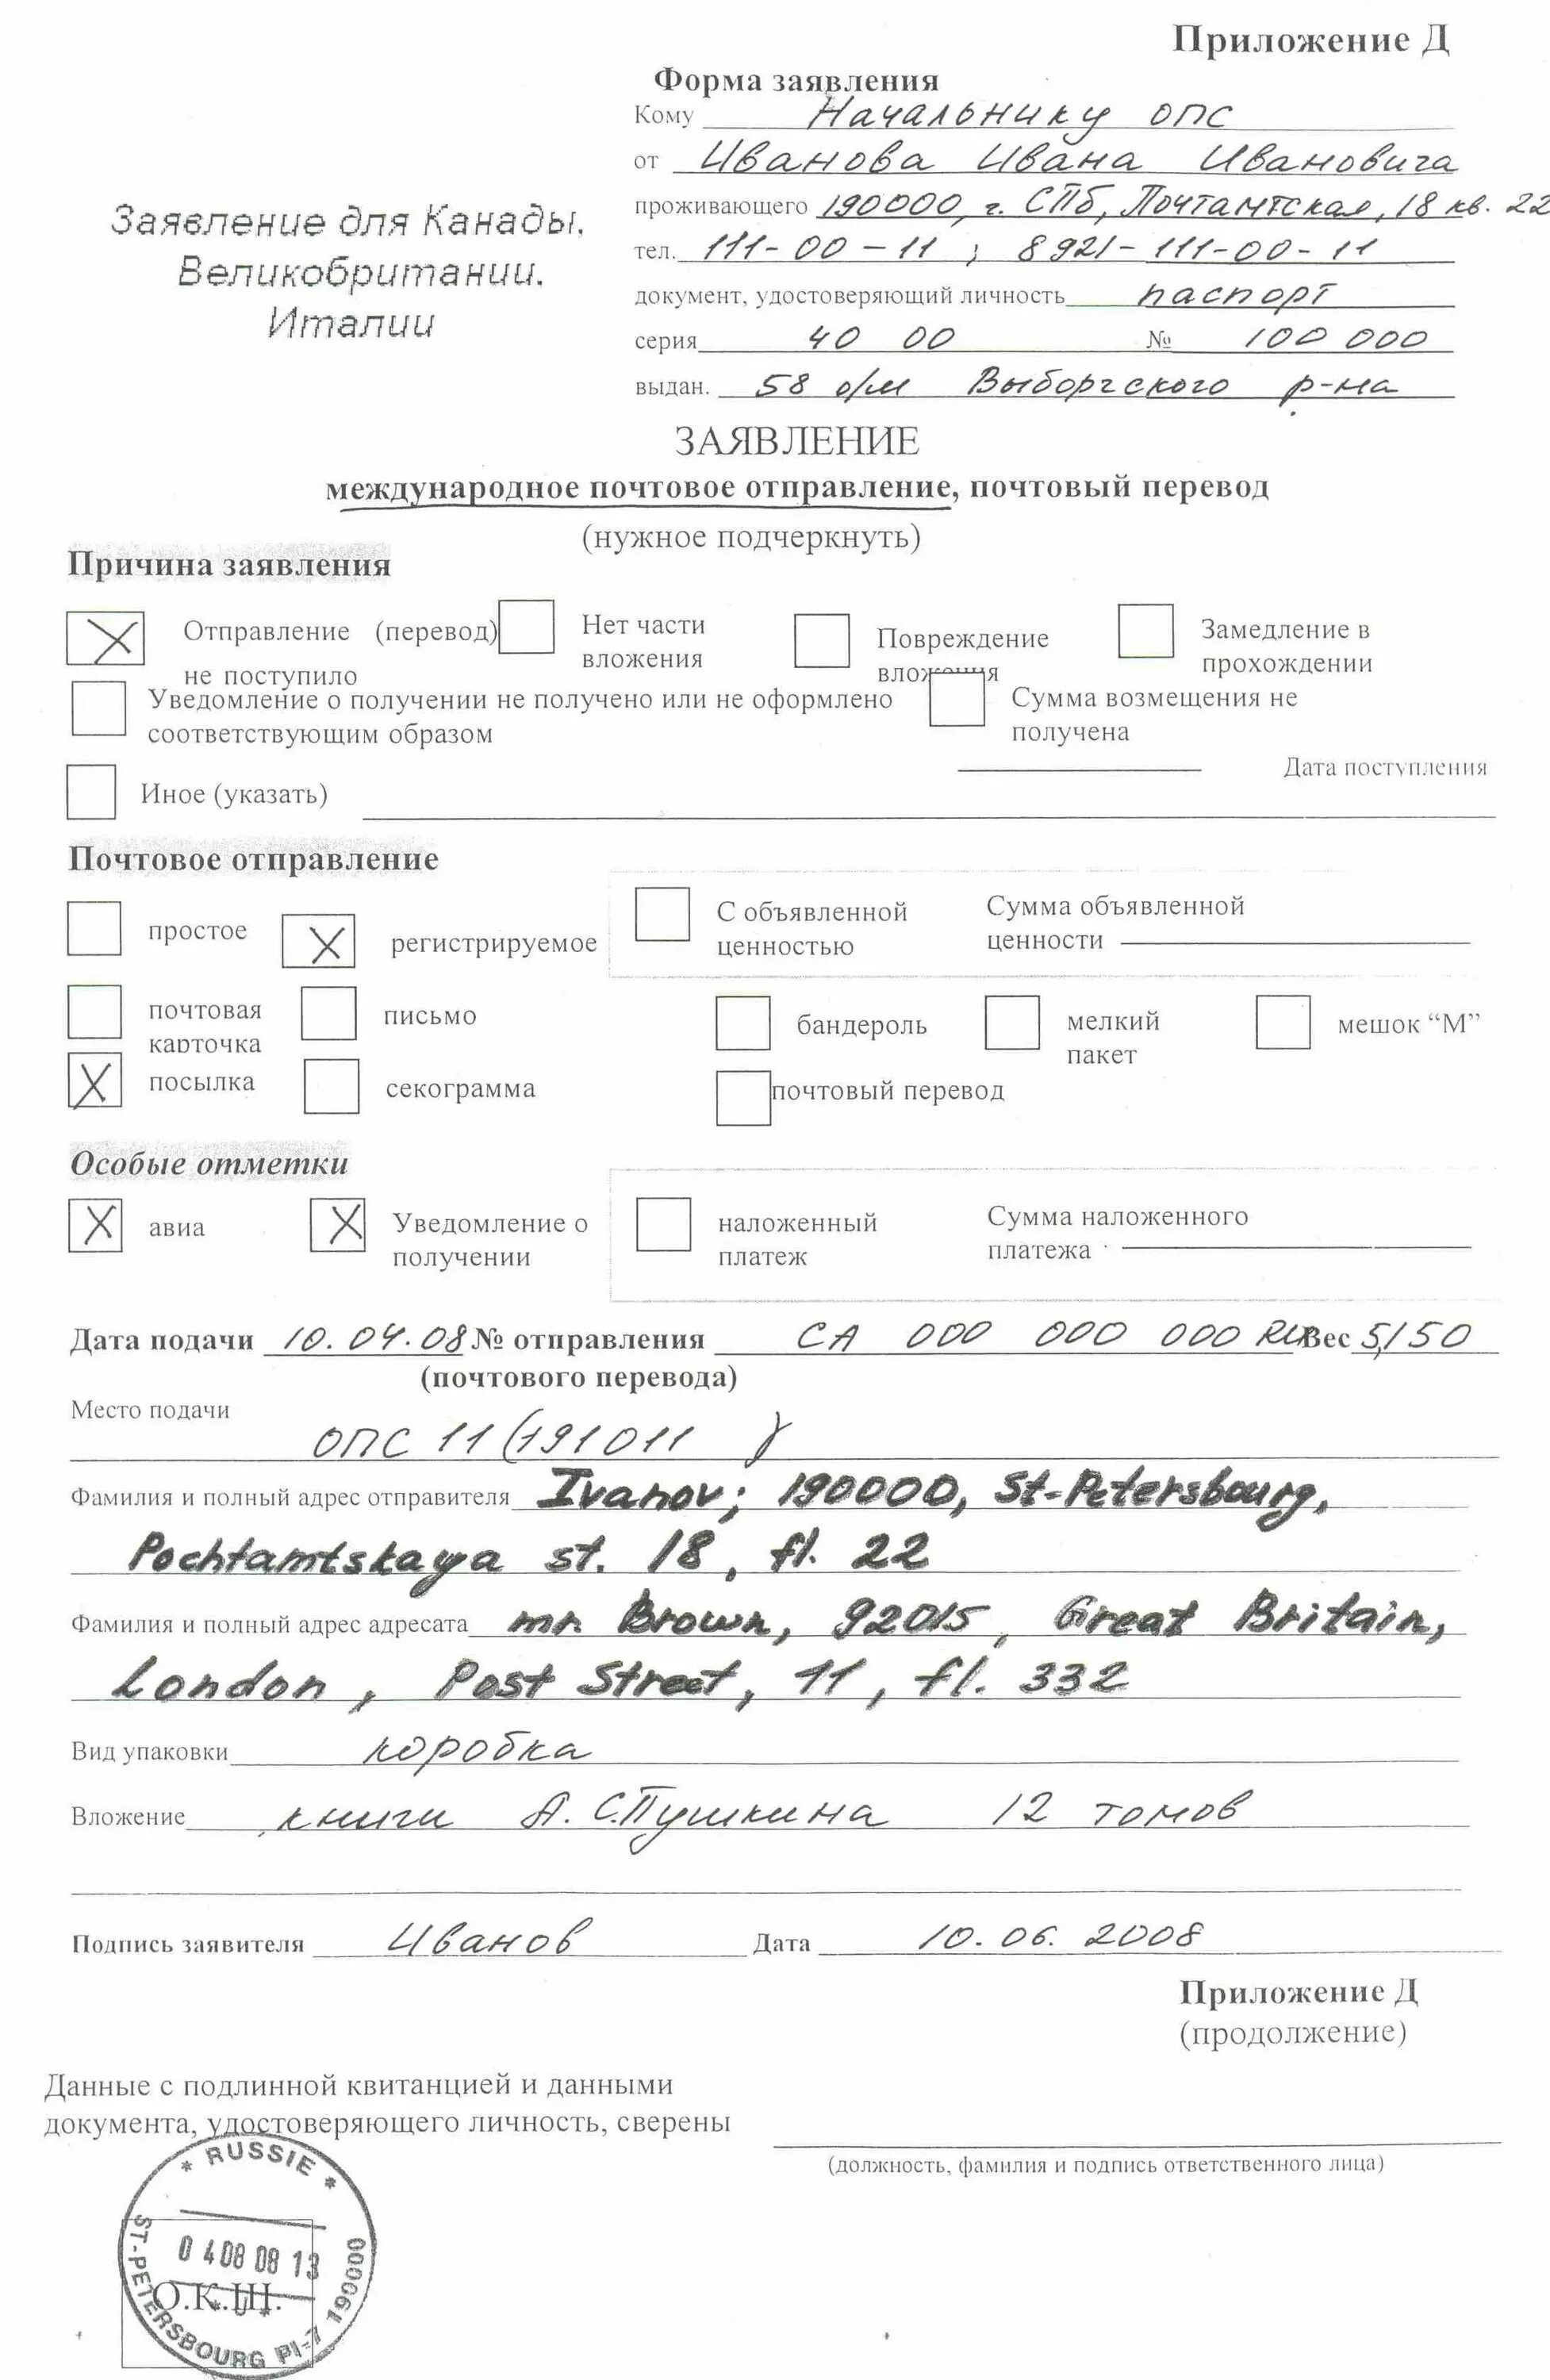 Приложение Д
Форма заявления
Кому Начальнику ОПС
от Иванова Ивана Ивановича
проживающего 190000, г. СПб, Почтамтская, 18 кв. 22
тел. 111-00-11 ; 8921-111-00-11
документ, удостоверяющий личность паспорт
серия 40 00 № 100 000
выдан. 58 о/м Выборгского р-на
Заявление для Канады.
Великобритании.
Италии
ЗАЯВЛЕНИЕ
международное почтовое отправление, почтовый перевод
(нужное подчеркнуть)
Причина заявления
Отправление (перевод)
не поступило
Нет части
вложения
Повреждение
вложения
Замедление в
прохождении
Уведомление о получении не получено или не оформлено
соответствующим образом
Сумма возмещения не
получена
Дата поступления
Иное (указать)
Почтовое отправление
простое
регистрируемое
С объявленной
ценностью
Сумма объявленной
ценности
почтовая
карточка
письмо
бандероль
мелкий
пакет
мешок “М”
посылка
секограмма
почтовый перевод
Особые отметки
авиа
Уведомление о
получении
наложенный
платеж
Сумма наложенного
платежа
Дата подачи 10.04.08 № отправления CA 000 000 000 RU Вес 5,150
(почтового перевода)
Место подачи
ОПС 11 (191011 )
Фамилия и полный адрес отправителя Ivanov; 190000, St-Petersbourg,
Pochtamtskaya st. 18, fl. 22
Фамилия и полный адрес адресата mr. Brown, 92015, Great Britain,
London, Post Street, 11, fl. 332
Вид упаковки коробка
Вложение книги А. С. Пушкина 12 томов
Подпись заявителя Иванов Дата 10.06.2008
Приложение Д
(продолжение)
Данные с подлинной квитанцией и данными
документа, удостоверяющего личность, сверены
(должность, фамилия и подпись ответственного лица)
* RUSSIE *
0408 08 13
О.К.Ш.
ST-PETERSBOURG PI-7 190000